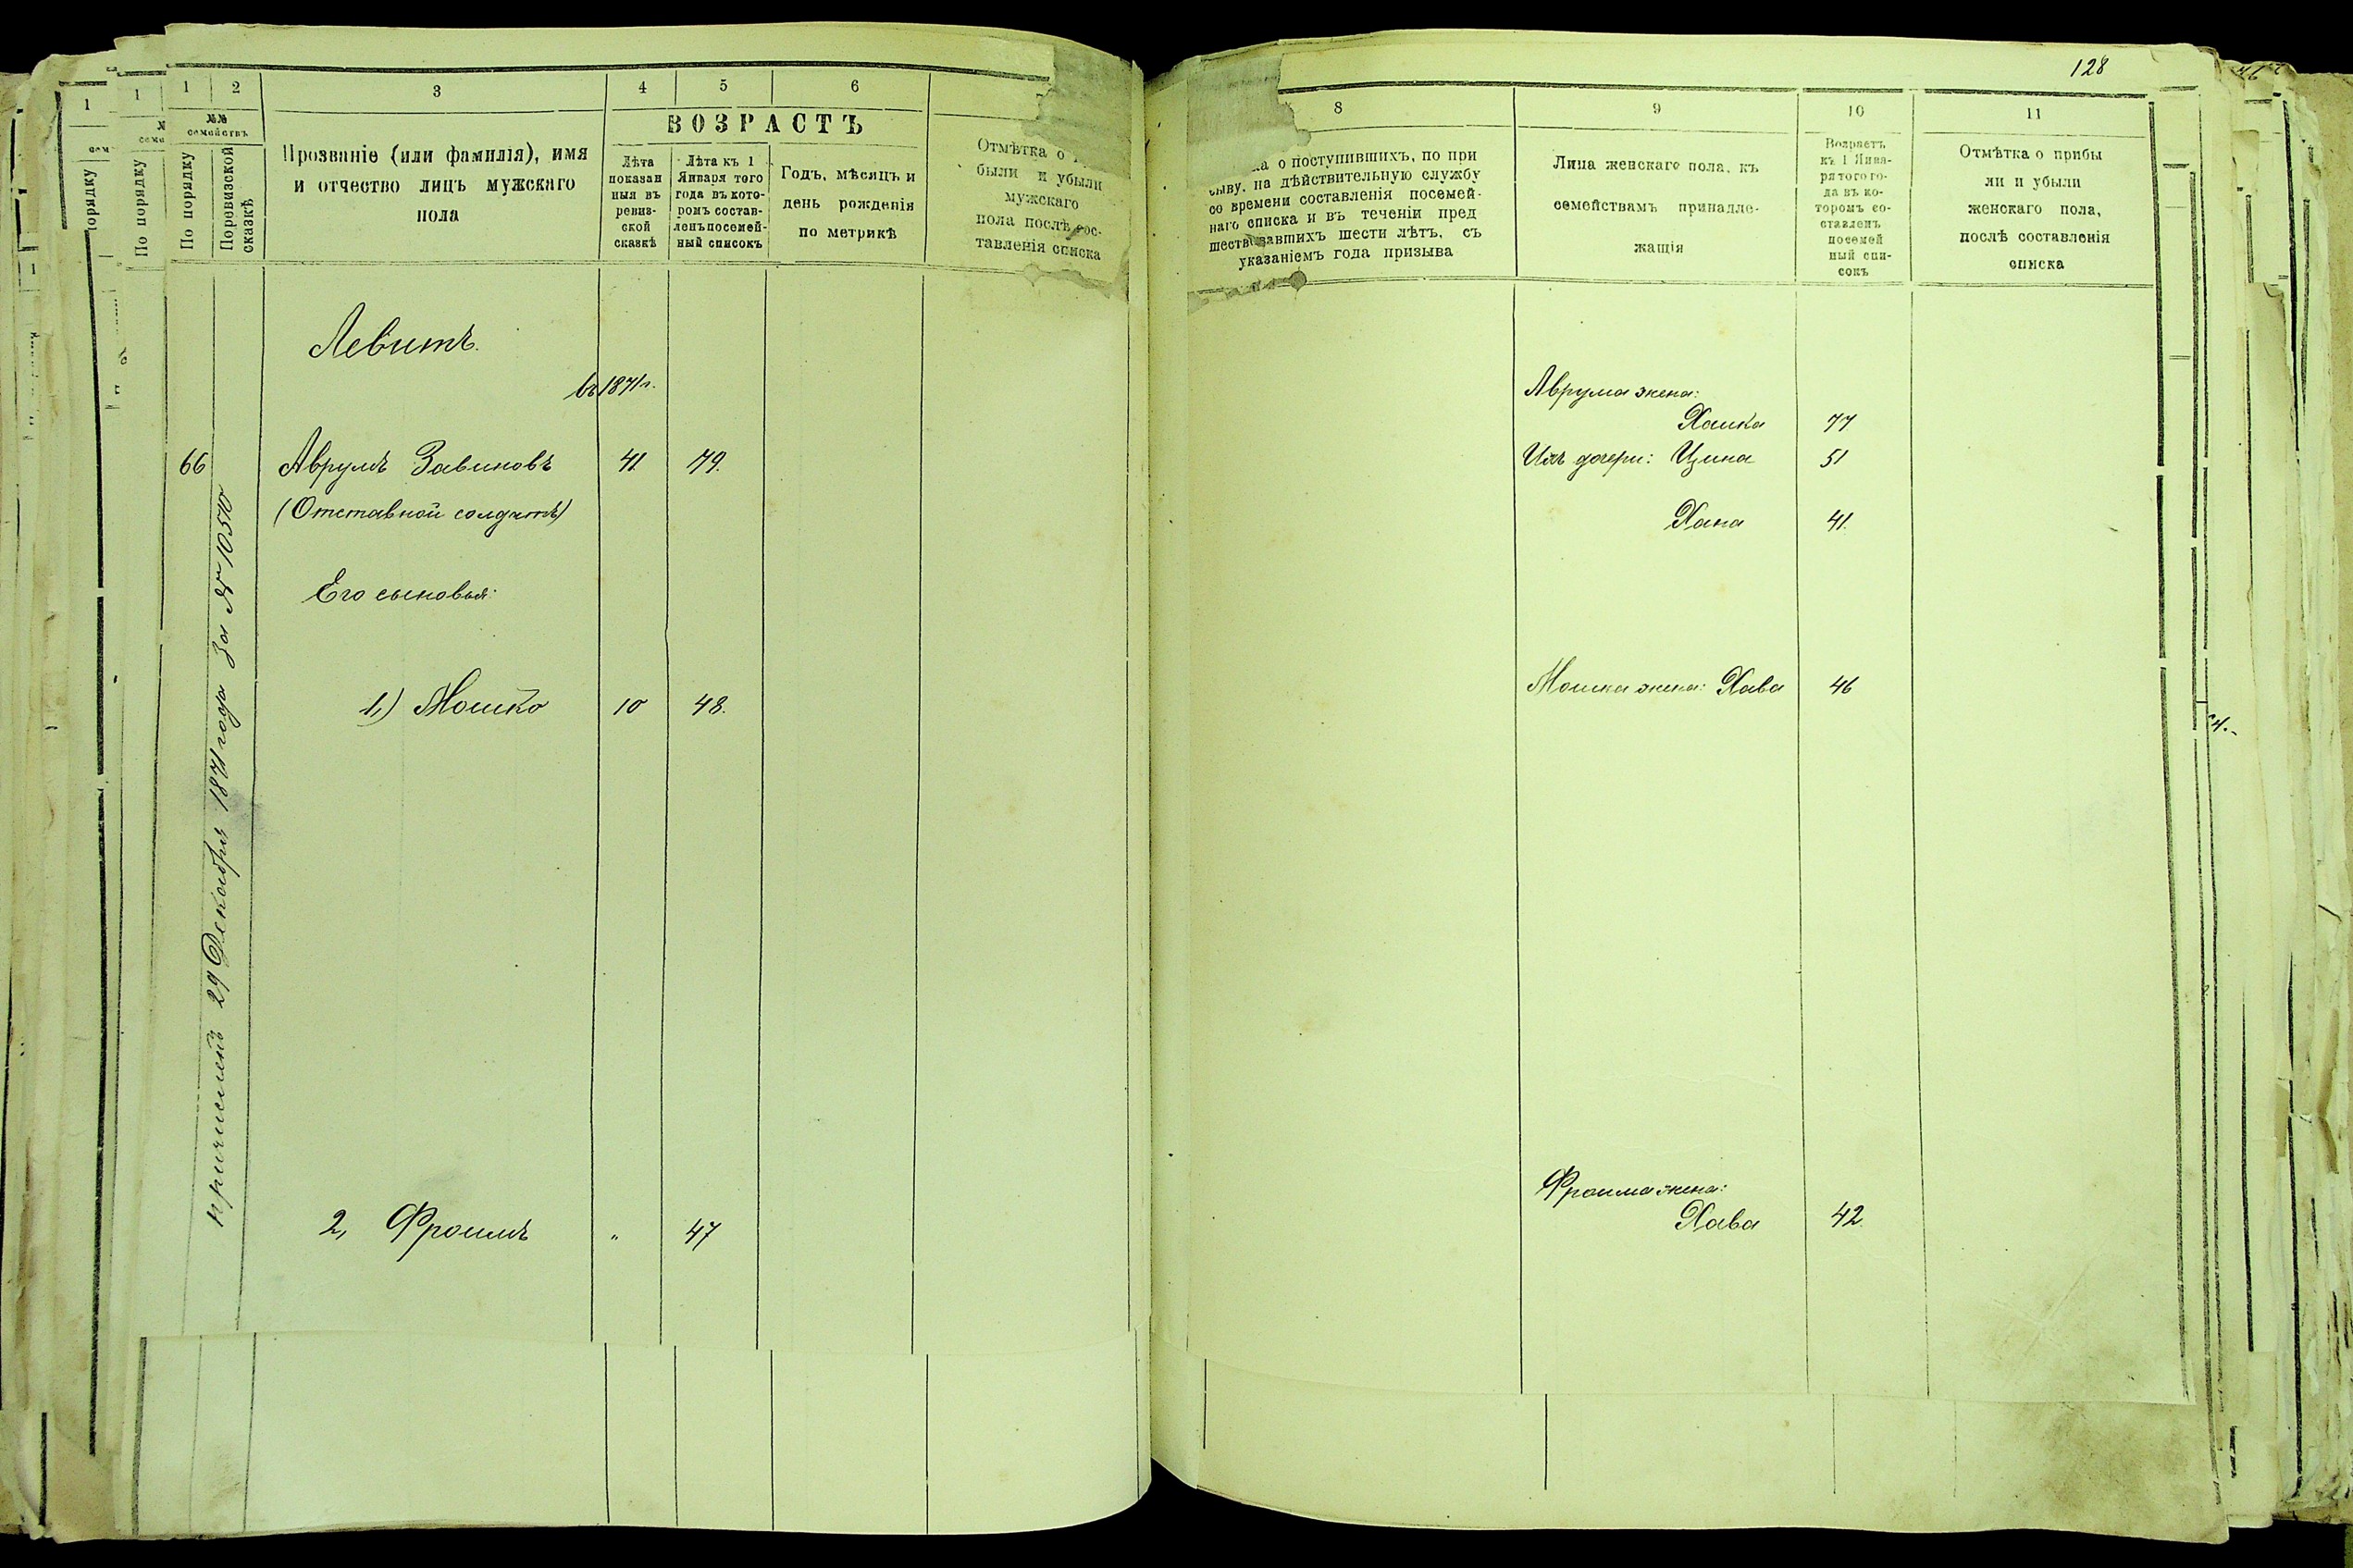 1 2 3 4 5 6
№№ семействъ
По порядку
По ревизской сказкѣ
Прозваніе (или фамилія), имя
и отчество лицъ мужскаго
пола
ВОЗРАСТЪ
Лѣта
показан
ныя въ
ревиз-
ской
сказкѣ
Лѣта къ 1
Января того
года въ кото-
ромъ состав-
ленъ посемей-
ный списокъ
Годъ, мѣсяцъ и
день рожденія
по метрикѣ
Отмѣтка о
были и убыли
мужскаго
пола послѣ сос-
тавленія списка
Левитъ.
въ 1871 г.
66 Аврумъ Завиновъ 41 79.
(Отставной солдатъ)
Его сыновья:
1,) Мошко 10 48.
2, Фроимъ " 47
причисленъ 29 Декабря 1871 года за № 10570
128
8 9 10 11
о поступившихъ, по при
зыву, на дѣйствительную службу
со времени составленія посемей-
наго списка и въ теченіи пред
шествовавшихъ шести лѣтъ, съ
указаніемъ года призыва
Лица женскаго пола, къ
семействамъ принадле-
жащія
Возрастъ
къ 1 Янва-
ря того го-
да въ ко-
торомъ со-
ставленъ
посемей
ный спи-
сокъ
Отмѣтка о прибы
ли и убыли
женскаго пола,
послѣ составленія
списка
Аврума жена:
Хашка 77
Ихъ дочери: Цина 51
Хана 41.
Мошка жена: Хава 46
Фроима жена:
Хава 42.